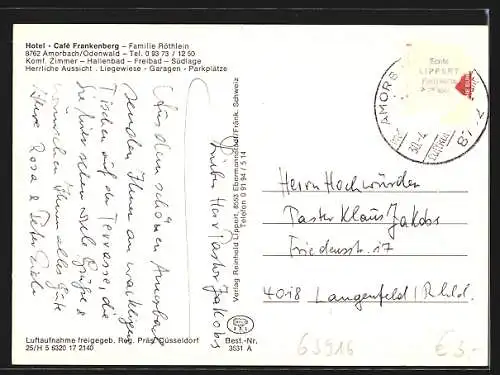 Hotel - Café Frankenberg - Familie Röthlein
8762 Amorbach/Odenwald - Tel. 0 93 73 / 12 50
Komf. Zimmer - Hallenbad - Freibad - Südlage
Herrliche Aussicht . Liegewiese - Garagen - Parkplätze
Lieber Herr Pastor Jakobs
Aus dem schönen Amorbach
senden Ihnen an wackligen
Tischen auf der Terrasse, die
Sie hier sehen viele Grüße &
wünschen Ihnen alles Gute
Ihre Rosa & Peter
Verlag Reinhold Lippert, 8553 Ebermannstadt/Fränk. Schweiz
Telefon 0 91 94 / 5 14
Echte
LIPPERT
AMORB
30.-4.
87
Herrn Hochwürden
Pastor Klaus Jakobs
Friedensstr. 17
4018 Langenfeld/Rhld.
Luftaufnahme freigegeb. Reg. Präs. Düsseldorf
25/H 5 6320 17 2140
Best.-Nr.
3531 A
63916
€ 3.-